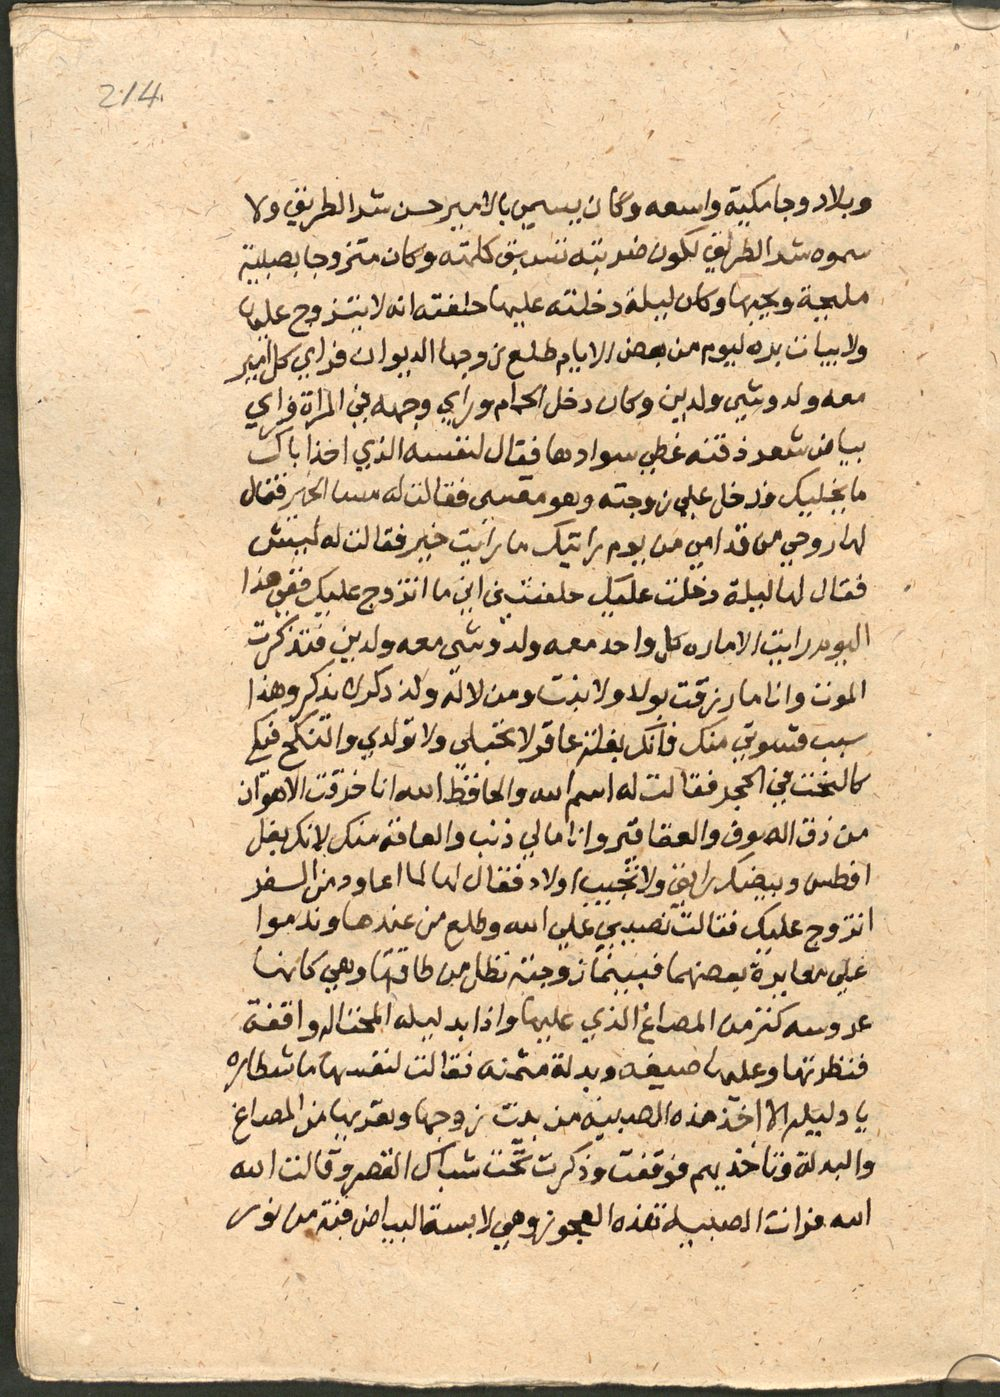 214
وبلاد وجامكية واسعه وكان يسمي بالامير حسن شر الطريق ولا
سموه شر الطريق لكون ضربته تسبق كلمته وكان متزوجا بصبية
مليحة ويحبها وكان ليلة دخلته عليها حلفته انه لا يتزوج عليها
ولا يبات بره ليوم من بعض الايام طلع زوجها الديوان فراي كل امير
معه ولد وشي ولدين وكان دخل الحمام وراي وجهه في المراة فراي
بياض شعر ذقنه غطي سوادها فقال لنفسه الذي اخذ اباك
ما يخليك فدخل علي زوجته وهو مقسي فقالت له مسا الخير فقال
لها روحي من قدامي من يوم رايتك ما رايت خير فقالت له ليش
فقال لها ليلة دخلت عليك حلفتيني اني ما اتزوج عليك ففي هذا
اليوم رايت الاماره كل واحد معه ولد وشي معه ولدين فتذكرت
الموت وانا ما رزقت بولد ولا بنت ومن لا له ولد ذكر لا يذكر وهذا
سبب قسوتي منك فانك بغلة عاقر لا تحبلي ولا تولدي والنكح فيكي
كالنحت في الحجر فقالت له اسم الله والحافظ الله انا خرقت الاهوان
من دق الصوف والعقاقير وانا مالي ذنب والعاقه منك لانك بغل
افطس وبيضك رايق ولا تجيب اولاد فقال لها لما اعاود من السفر
اتزوج عليك فقالت نصيبي علي الله وطلع من عندها وندموا
علي معايرة بعضهما فبينما زوجته تطل من طاقتها وهي كانها
عروسه كنز من المصاغ الذي عليها واذا بدليله المحتاله واقفة
فنظرتها وعليها صيغه وبدلة مثمنه فقالت لنفسها ما شطاره
يا دليله الا اخذ هذه الصبية من بيت زوجها وتعريها من المصاغ
والبدلة وتاخذيهم فوقفت وذكرت تحت شباك القصر وقالت الله
الله فرات الصبيه هذه العجوز وهي لابسة البياض قبة من نور